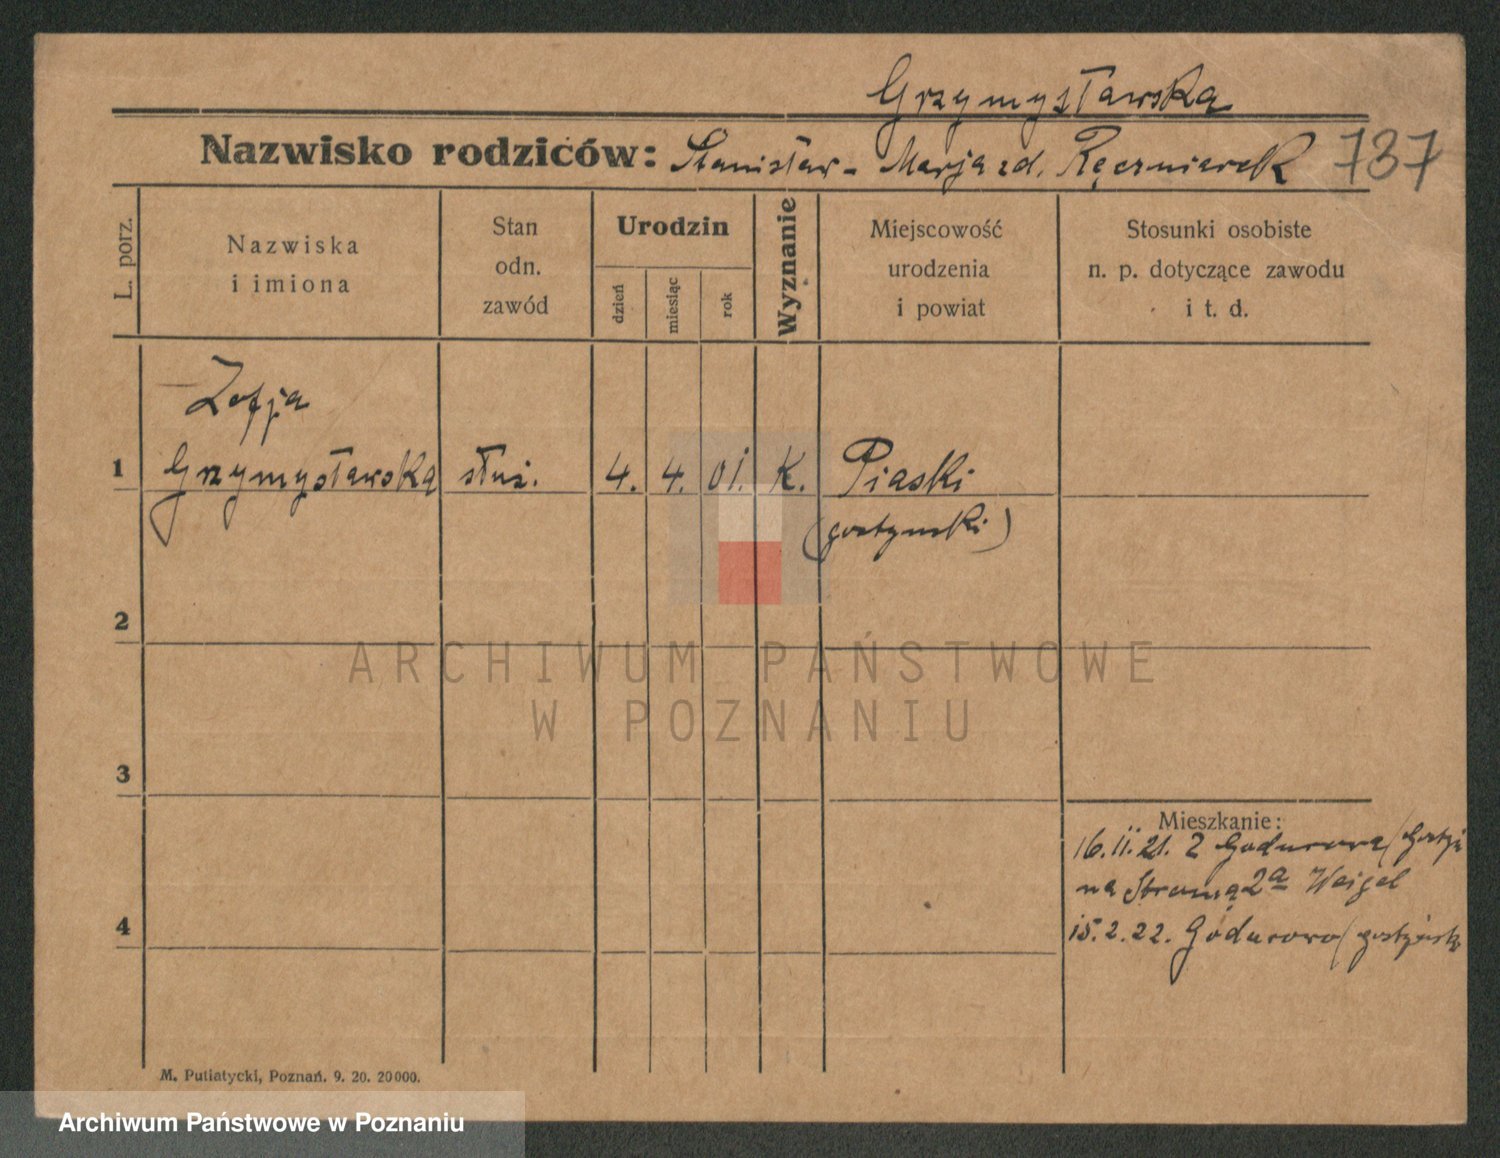 Grzymysławska
Nazwisko rodziców: Stanisław - Marja zd. Ręczniarek 737
L. porz.
Nazwiska
i imiona
Stan
odn.
zawód
Urodzin
dzień
miesiąc
rok
Wyznanie
Miejscowość
urodzenia
i powiat
Stosunki osobiste
n. p. dotyczące zawodu
i t. d.
Zofja
1 Grzymysławska służ. 4. 4. 01. K. Piaski
(gostynski)
2
ARCHIWUM PAŃSTWOWE
W POZNANIU
3
Mieszkanie:
16.II.21. z Godurowa
na 2a Weigel
4
15.2.22. Godurowo
M. Putiatycki, Poznań. 9. 20. 20000.
Archiwum Państwowe w Poznaniu